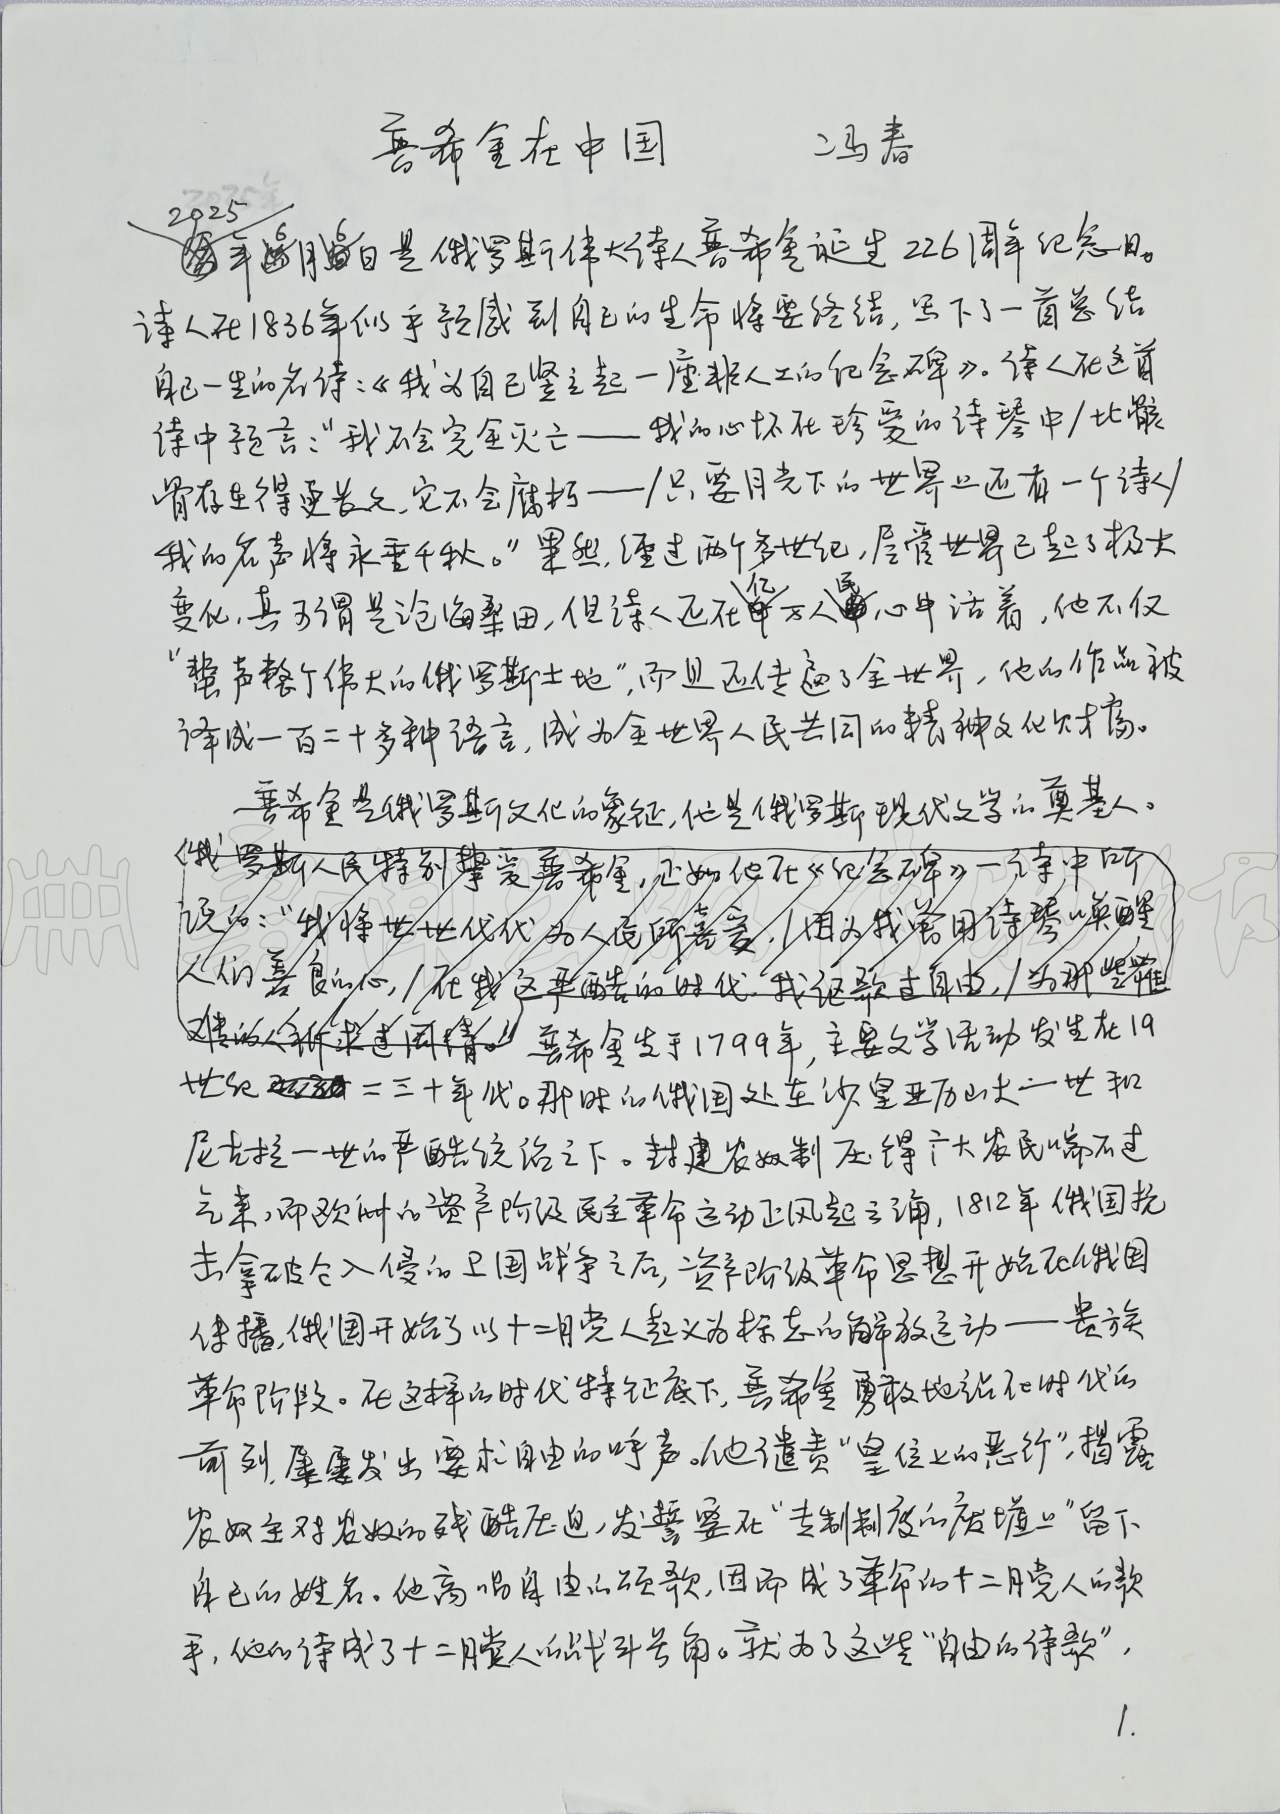 普希金在中国 冯春
2025
年6月6日是俄罗斯伟大诗人普希金诞生226周年纪念日。
诗人在1836年似乎预感到自己的生命将要终结,写下了一首总结
自己一生的名诗:《我为自己竖立起一座非人工的纪念碑》。诗人在这首
诗中预言:"我不会完全灭亡——我的心怀在珍爱的诗琴中/比骸
骨存生得更长久,它不会腐朽——/只要月光下的世界上还有一个诗人/
我的名声将永垂千秋。"果然,经过两个多世纪,尽管世界已起了极大
变化,真可谓是沧海桑田,但诗人还在亿万人民心中活着,他不仅
"蜚声整个伟大的俄罗斯土地",而且还传遍了全世界,他的作品被
译成一百二十多种语言,成为全世界人民共同的精神文化财富。
普希金是俄罗斯文化的象征,他是俄罗斯现代文学的奠基人。
俄罗斯人民特别挚爱普希金,正如他在《纪念碑》一诗中所
说的:"我将世世代代为人民所喜爱,/因为我曾用诗琴唤醒
人们善良的心,/在我这严酷的时代,我讴歌过自由,/为那些罹
难的人祈求过同情。"普希金生于1799年,主要文学活动发生在19
世纪二三十年代。那时的俄国处在沙皇亚历山大一世和
尼古拉一世的严酷统治之下。封建农奴制压得广大农民喘不过
气来,而欧洲的资产阶级民主革命运动正风起云涌,1812年俄国抗
击拿破仑入侵的卫国战争之后,资产阶级革命思想开始在俄国
传播,俄国开始了以十二月党人起义为标志的解放运动——贵族
革命阶段。在这样的时代特征底下,普希金勇敢地站在时代的
前列,屡屡发出要求自由的呼声。他谴责"皇位上的恶行",揭露
农奴主对农奴的残酷压迫,发誓要在"专制制度的废墟上"留下
自己的姓名。他高唱自由的颂歌,因而成了革命的十二月党人的歌
手,他的诗成了十二月党人的战斗号角。就为了这些"自由的诗歌",
1.